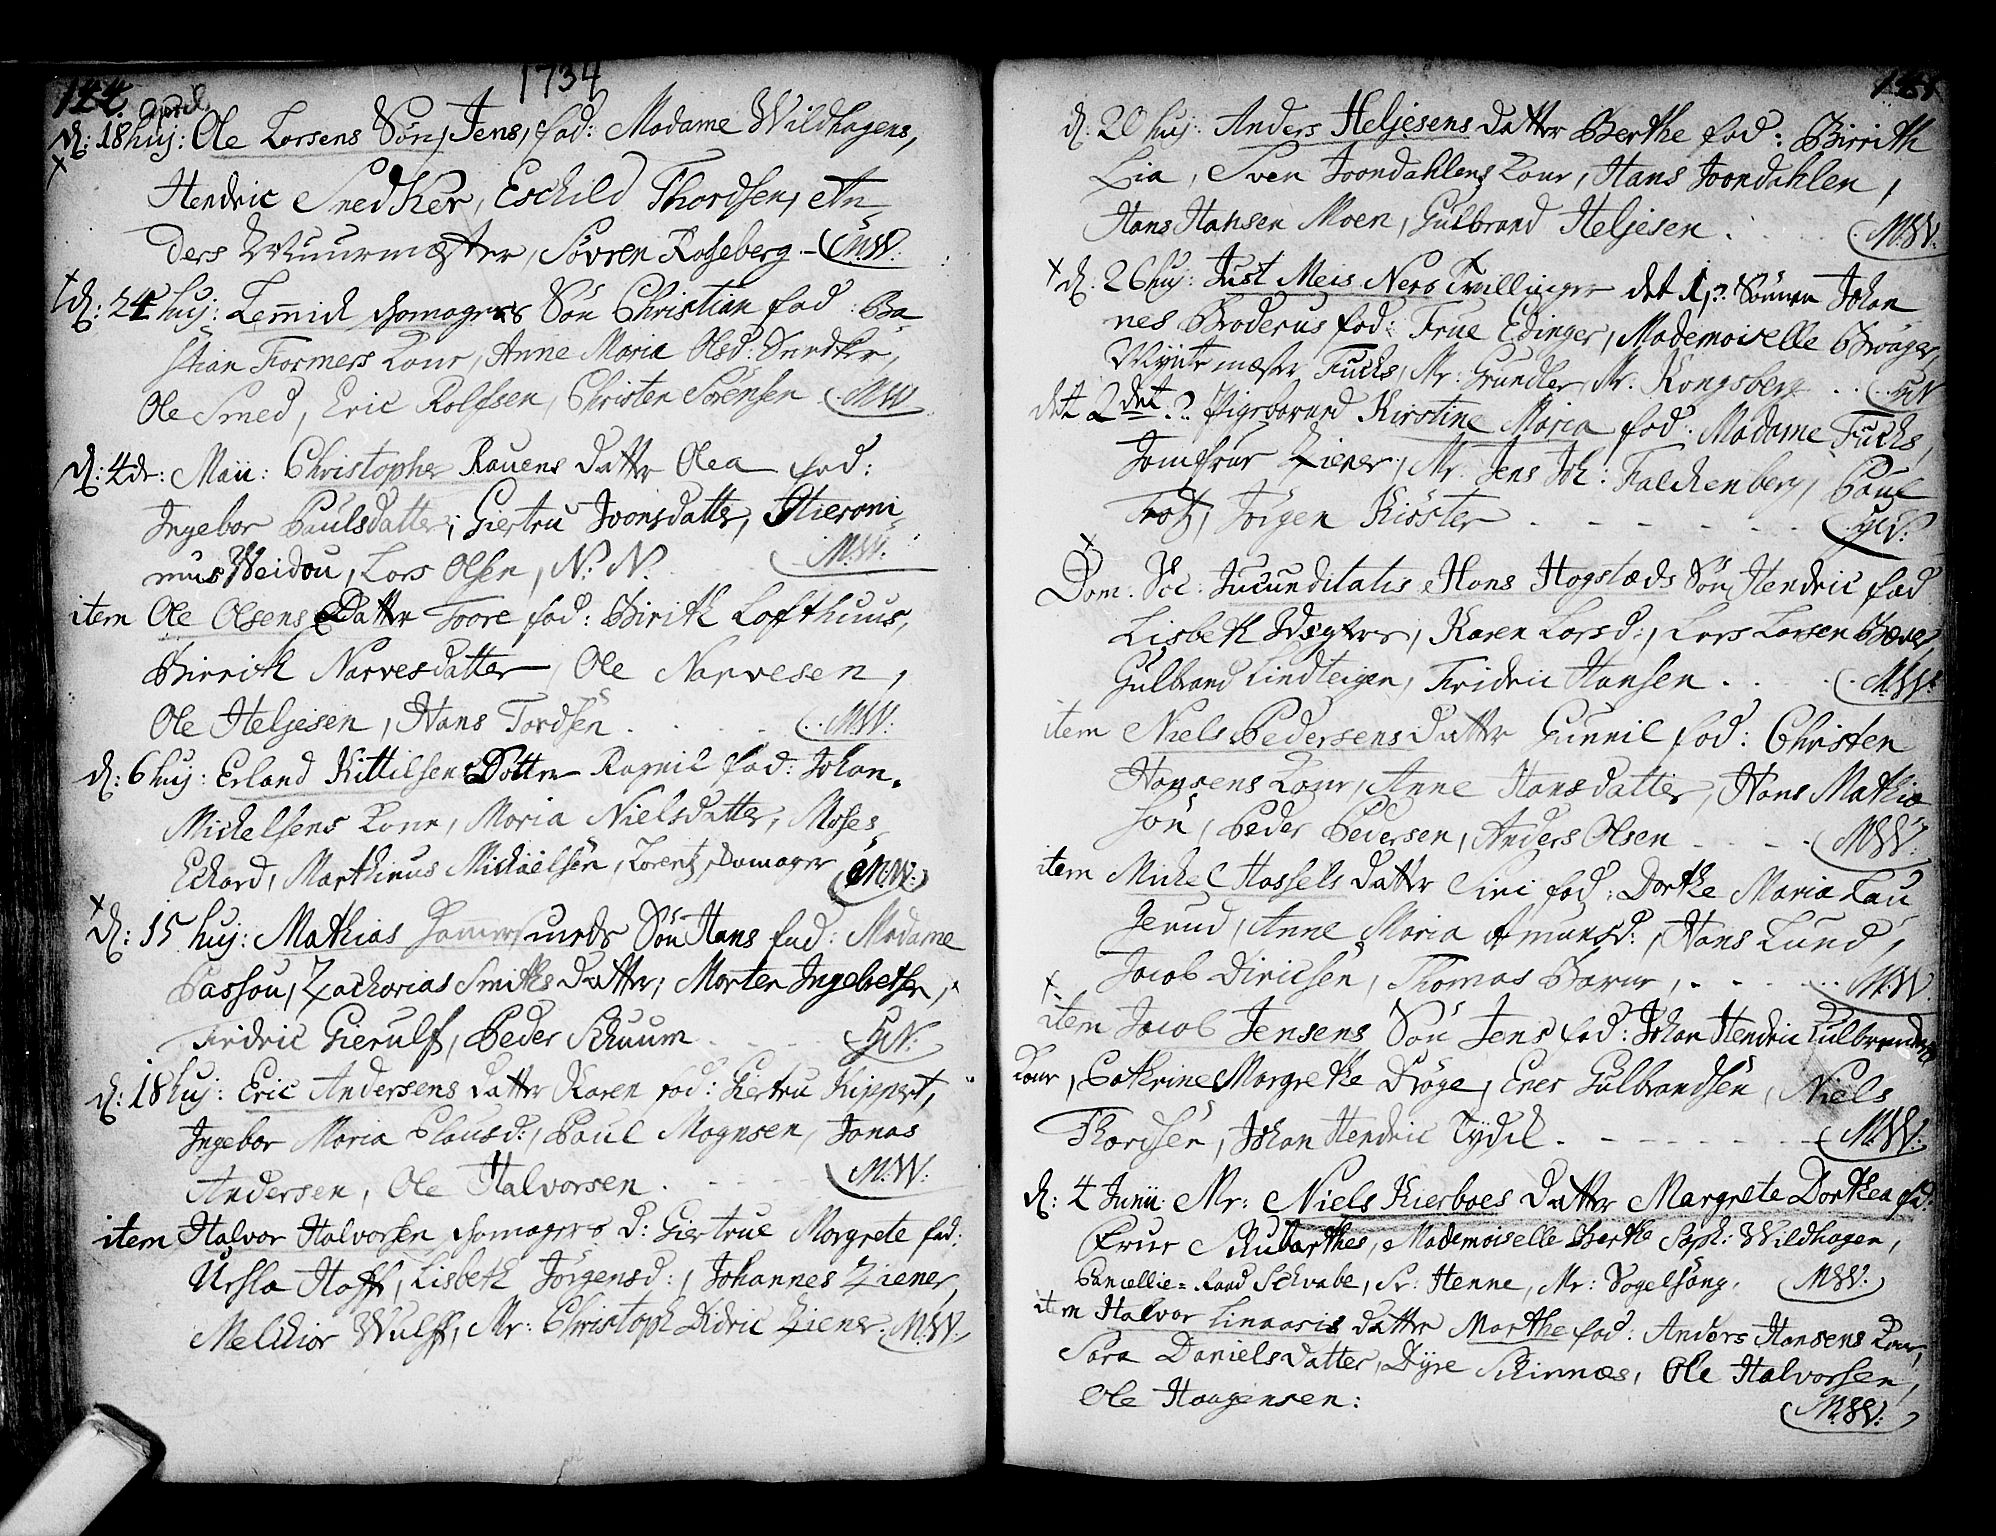 144.
1734
April.
d: 18 huj: Ole Larsens Søn, Jens, fad: Madame Wildhagens,
Hendric Snedker, Eschild Thordsen, An
ders Muurmæster, Søvren Roseberg. M.W.
d: 24 huj: Søn Christian fad: Ba
stian Formers Kone, Anne Maria Olsd: Snedker,
Ole Smed, Eric Rolfsen, Christen Sörensen M.W.
d: 4de: Maii: Christopher Rauens datter Olea fad:
Ingebor Paulsdatter, Giertru Joonsdatter, Hieroni-
mus Weidou, Lars Olsen, N. N. M.W.
item Ole Olsens Datter Toore fad: Birith Lofthuus,
Birrith Narvesdatter, Ole Narvesen,
Ole Heljesen, Hans Tordsen . . . M.W.
d: 6 huj: Erland Kittilsens Dotter Ragnil fad: Johan
Michelsens Kone, Maria Nielsdatter, Moses
Echard, Marthinus Michaëlsen, Lorentz M.W.
d: 15 huj: Mathias Søn Hans fad: Madame
Passou, Zacharias Smiths Datter, Morten Ingebretsen,
Fridric Gierulf, Peder Schuum
d: 18 huj: Eric Andersens datter Karen fad: Giertru Kippert,
Ingebor Maria Clausd:, Paul Magnsen, Jonas
Andersen, Ole Halvorsen . M.W.
item Halvor Halvorsen D: Giertrue Margrete fad:
Ursla Hoff, Lisbeth Jörgensd:, Johannes Ziener,
Melchior Wulff, Mr: Christoph Didric Ziener. M.W.
d: 20 huj: Anders Heljesens datter Berthe fad: Birrith
Lia, Sven Joondahlens Kone, Hans Joondahlen,
Hans Hansen Moen, Gulbrand Heljesen . . . M.W.
d: 26 huj: Just Meis Ners Tvillinger det 1. Sönnen Johan
nes Broderus fad: Frue Edinger, Mademoiselle
Myntmæster Fuchs, Mr: Gründler, Mr. Kongsberg
det 2det Pigebarnet Kirstine Maria fad: Madame Fuchs,
Jomfrue Ziener, Mr. Jens Joh: Falchenberg, Paul
Trotz, Jörgen Kiöster
Dom. Jucunditatis Hans Hogstæds Søn Hendric fad
Lisbeth Karen Larsd:, Lars Larsen
Gulbrand Lindteigen, Fridric Hansen . . . M.W.
item Niels Pedersens Datter Gunnil fad: Christen
Hansens Kone, Anne Hansdatter, Hans Mathia
sön, Peder Pedersen, Anders Olsen . . . M.W.
item Michel Hassels datter Siri fad: Dorthe Maria Lau
gerud, Anne Maria Amunsd:, Hans Lund,
Jacob Diricsen, Thomas M.W.
item Jacob Jensens Søn Jens fad: Johan Hendric
Kone, Cathrine Margrethe Dröge, Ener Gulbrandsen, Niels
Thordsen, Johan Hendric Tydik M.W.
d: 4 Junii Mr: Niels Kierboes datter Margrete Dorthea fad:
Frue Schubarthes, Mademoiselle Berthe Soph: Wildhagen,
Cancellie-Raad Schvabe, Sr: Henne, Mr: Vogelsang. M.W.
item Halvor Linaaris datter Marthe fad: Anders Hansens Kone,
Sara Danielsdatter, Dyre Schinnæs, Ole Halvorsen,
Ole Haagensen: M.W.